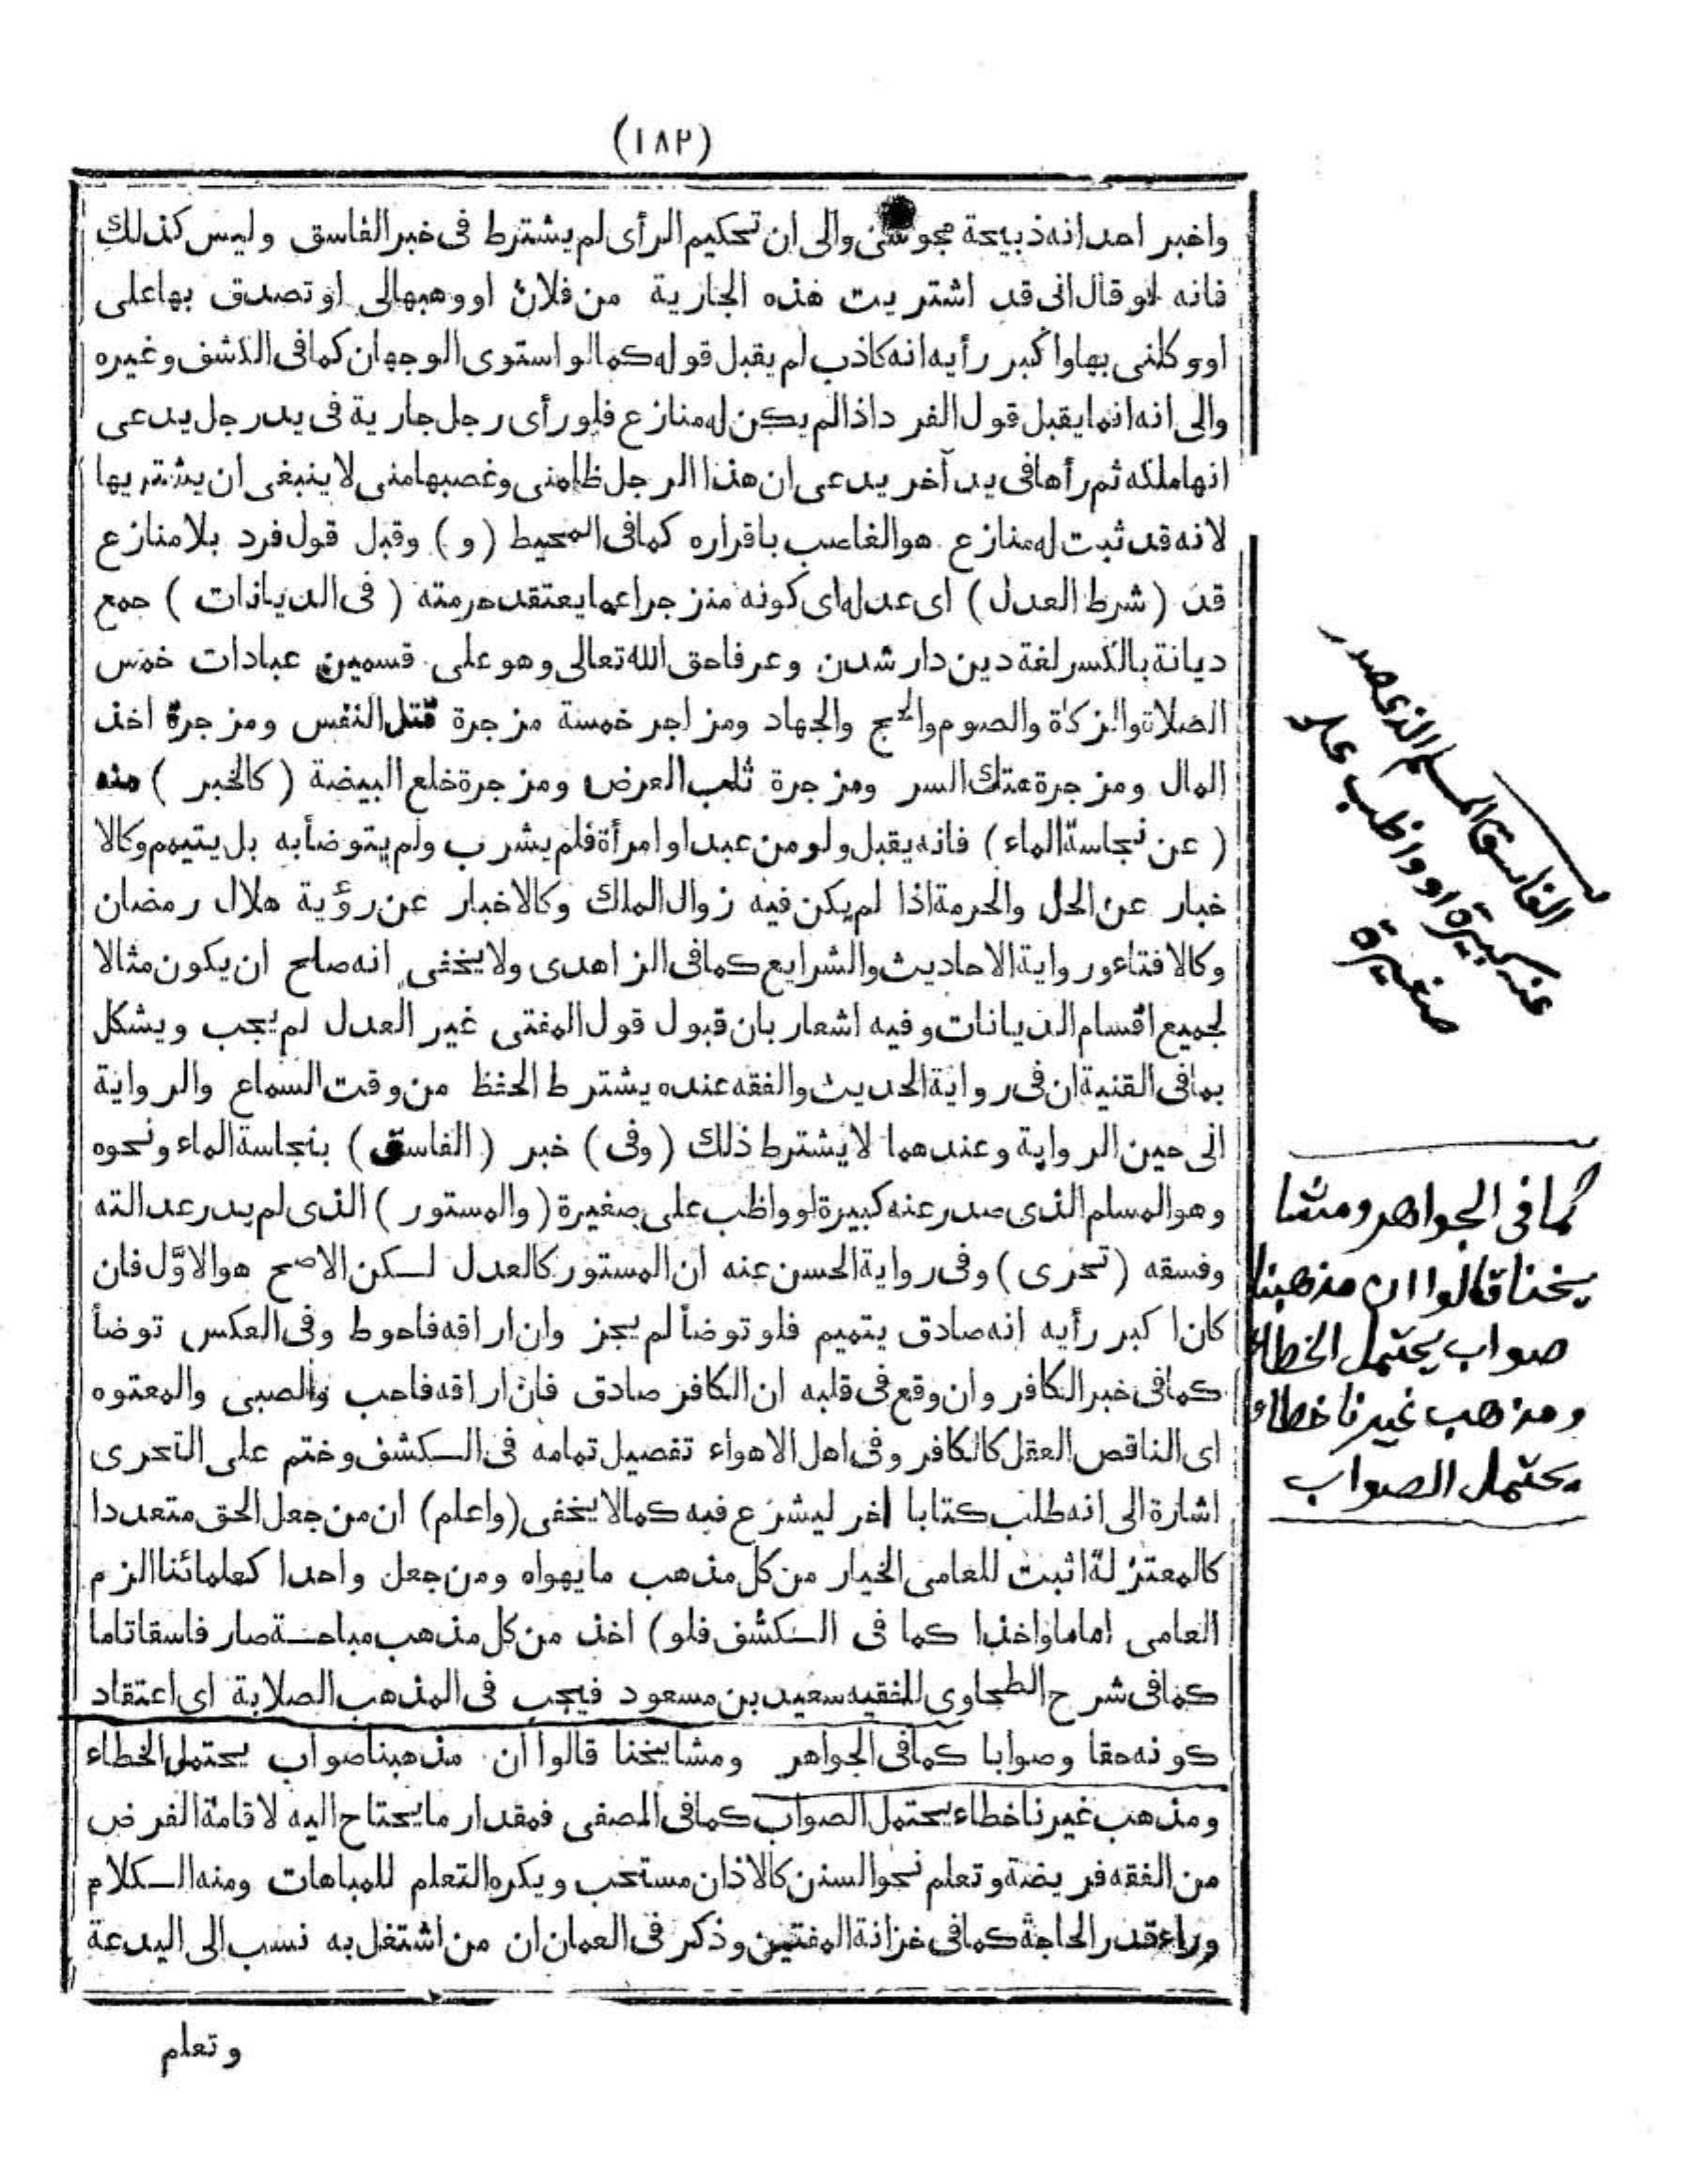 (١٨٢)
واخبر احد انه ذبيحة مجوسى والى ان تحكيم الرأى لم يشترط فى خبر الفاسق وليس كذلك
فانه لو قال انى قد اشتريت هذه الجارية من فلان او وهبها لى او تصدق بها على
او وكلنى بها واكبر رأيه انه كاذب لم يقبل قوله كما لو استوى الوجهان كما فى الكشف وغيره
والى انه انما يقبل قول الفرد اذا لم يكن له منازع فلو رأى رجل جارية فى يد رجل يدعى
انها ملكه ثم رأها فى يد آخر يدعى ان هذا الرجل ظلمنى وغصبها منى لا ينبغى ان يشتريها
لانه قد ثبت له منازع هو الغاصب باقراره كما فى المحيط (و) وقبل قول فرد بلا منازع
قد (شرط العدل) اى عدله اى كونه منزجرا عما يعتقد حرمته (فى الديانات) جمع
ديانة بالكسر لغة دين دار شدن وعرفا حق الله تعالى وهو على قسمين عبادات خمس
الصلاة والزكاة والصوم والحج والجهاد ومزاجر خمسة مزجرة قتل النفس ومزجرة اخذ
المال ومزجرة هتك الستر ومزجرة ثلب العرض ومزجرة خلع البيضة (كالخبر) منه
(عن نجاسة الماء) فانه يقبل ولو من عبد او امرأة فلم يشرب ولم يتوضأ به بل يتيمم وكالا
خبار عن الحل والحرمة اذا لم يكن فيه زوال الملك وكالاخبار عن رؤية هلال رمضان
وكالافتاء ورواية الاحاديث والشرايع كما فى الزاهدى ولا يخفى انه صلح ان يكون مثالا
لجميع اقسام الديانات وفيه اشعار بان قبول قول المفتى غير العدل لم يجب ويشكل
بما فى القنية ان فى رواية الحديث والفقه عنده يشترط الحفظ من وقت السماع والرواية
الى حين الرواية وعندهما لا يشترط ذلك (وفى) خبر (الفاسق) بنجاسة الماء ونحوه
وهو المسلم الذى صدر عنه كبيرة او واظب على صغيرة (والمستور) الذى لم يدر عدالته
وفسقه (تحرى) وفى رواية الحسن عنه ان المستور كالعدل لكن الاصح هو الاوّل فان
كان اكبر رأيه انه صادق يتميم فلو توضأ لم يجز وان اراقه فاحوط وفى العكس توضأ
كما فى خبر الكافر وان وقع فى قلبه ان الكافر صادق فان اراقه فاحب والصبى والمعتوه
اى الناقص العقل كالكافر وفى اهل الاهواء تفصيل تمامه فى الكشف وختم على التحرى
اشارة الى انه طلب كتابا اخر ليشرع فيه كما لا يخفى (واعلم) ان من جعل الحق متعددا
كالمعتزلة اثبت للعامى الخيار من كل مذهب ما يهواه ومن جعل واحدا كعلمائنا الزم
العامى اماما واحدا كما فى الكشف فلو) اخذ من كل مذهب مباحه صار فاسقا تاما
كما فى شرح الطحاوى للفقيه سعيد بن مسعود فيجب فى المذهب الصلابة اى اعتقاد
كونه حقا وصوابا كما فى الجواهر ومشايخنا قالوا ان مذهبنا صواب يحتمل الخطاء
ومذهب غيرنا خطاء يحتمل الصواب كما فى المصفى فمقدار ما يحتاح اليه لاقامة الفرض
من الفقه فريضة وتعلم نحو السنن كالاذان مستحب ويكره التعلم للمباهات ومنه الكلام
وراء قدر الحاجة كما فى خزانة المفتين وذكر فى العمان ان من اشتغل به نسب الى البدعة
وتعلم
الفاسق المسلم الذى صدر
عنه كبيرة او واظب على
صغيرة
كما فى الجواهر ومشا
يخنا قالوا ان مذهبنا
صواب يحتمل الخطاء
ومذهب غيرنا خطاء
يحتمل الصواب